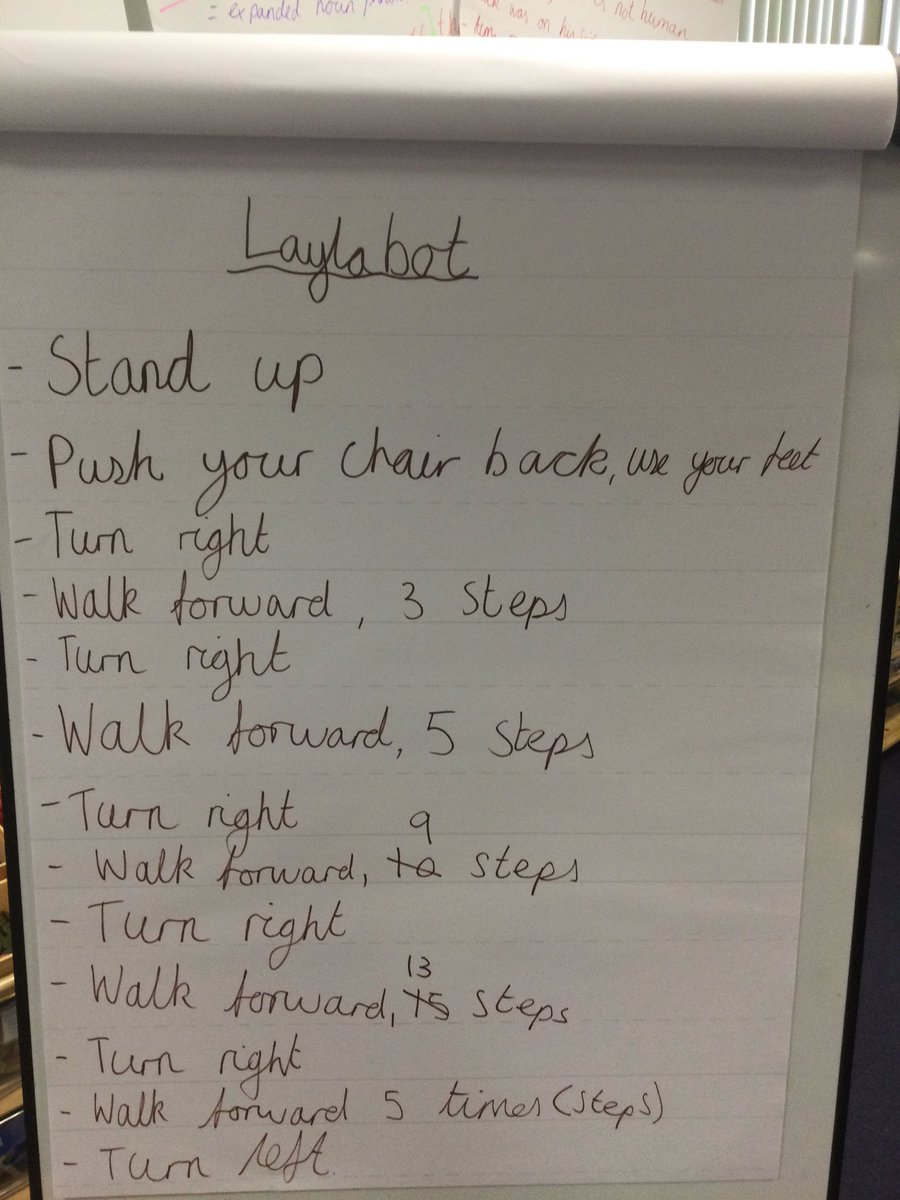 = expanded noun
was on his
is not human
Laylabot
- Stand up
- Push your chair back, use your feet
- Turn right
- Walk forward, 3 steps
- Turn right
- Walk forward, 5 steps
- Turn right
9
- Walk forward, 10 steps
- Turn right
13
- Walk forward, 15 steps
- Turn right
- Walk forward 5 times (steps)
- Turn left.